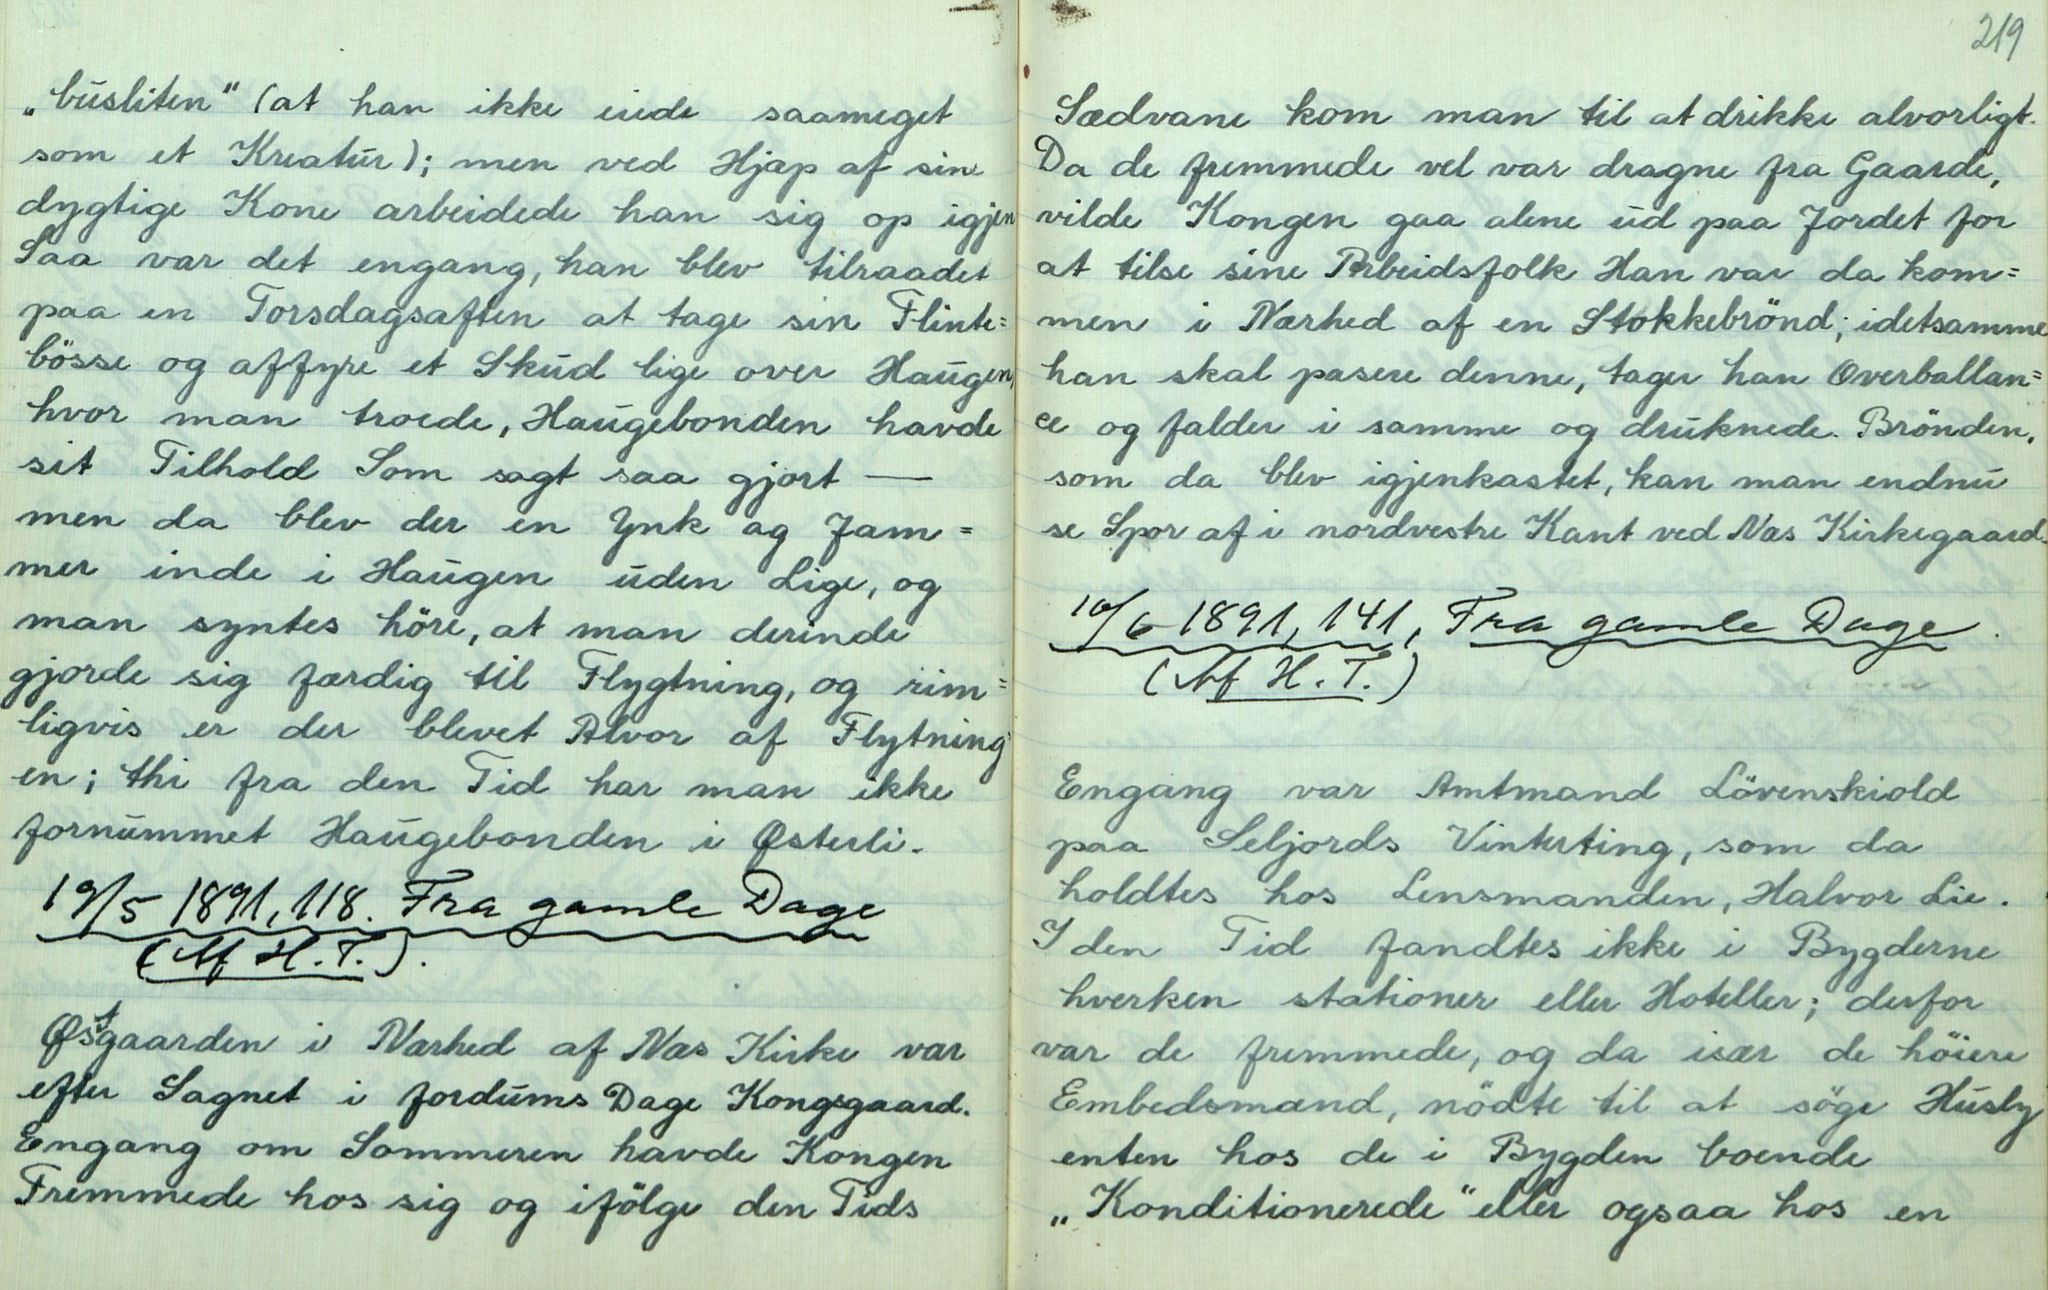 „busliten" (at han ikke eiede saameget
som et Kreatur); men ved Hjæp af sin
dygtige Kone arbeidede han sig op igjen
Saa var det engang, han blev tilraadet
paa en Torsdagsaften at tage sin Flinte=
bösse og affyre et Skud lige over Haugen,
hvor man troede, Haugebonden havde
sit Tilhold Som sagt saa gjort —
men da blev der en Ynk ag Jam=
mer inde i Haugen uden Lige, og
man syntes höre, at man derinde
gjorde sig færdig til Flygtning, og rim=
ligvis er der blevet Alvor af Flytning
en; thi fra den Tid har man ikke
fornummet Haugebonden i Østerli.
19/5 1891, 118. Fra gamle Dage
(Af H. T.).
Østgaarden i Nærhed af Næs Kirke var
efter Sagnet i fordums Dage Kongsgaard.
Engang om Sommeren havde Kongen
Fremmede hos sig og ifölge den Tids
219
Sædvane kom man til at drikke alvorligt.
Da de fremmede vel var dragne fra Gaarde,
vilde Kongen gaa alene ud paa Jordet for
at tilse sine Arbeidsfolk Han var da kom=
men i Nærhed af en Stokkebrönd; idetsamme
han skal pasere denne, tager han Overballan=
ce og falder i samme og druknede. Brönden,
som da blev igjenkastet, kan man endnu
se Spor af i nordvestre Kant ved Næs Kirkegaard.
10/6 1891, 141, Fra gamle Dage.
(Af H. T.)
Engang var Amtmand Lövenskiold
paa Seljords Vinterting, som da
holdtes hos Lensmanden, Halvor Lie.
I den Tid fandtes ikke i Bygderne
hverken stationer eller Hoteller; derfor
var de fremmede, og da især de höiere
Embedsmænd, nödte til at söge Husly
enten hos de i Bygden boende
„Konditionerede" eller ogsaa hos en